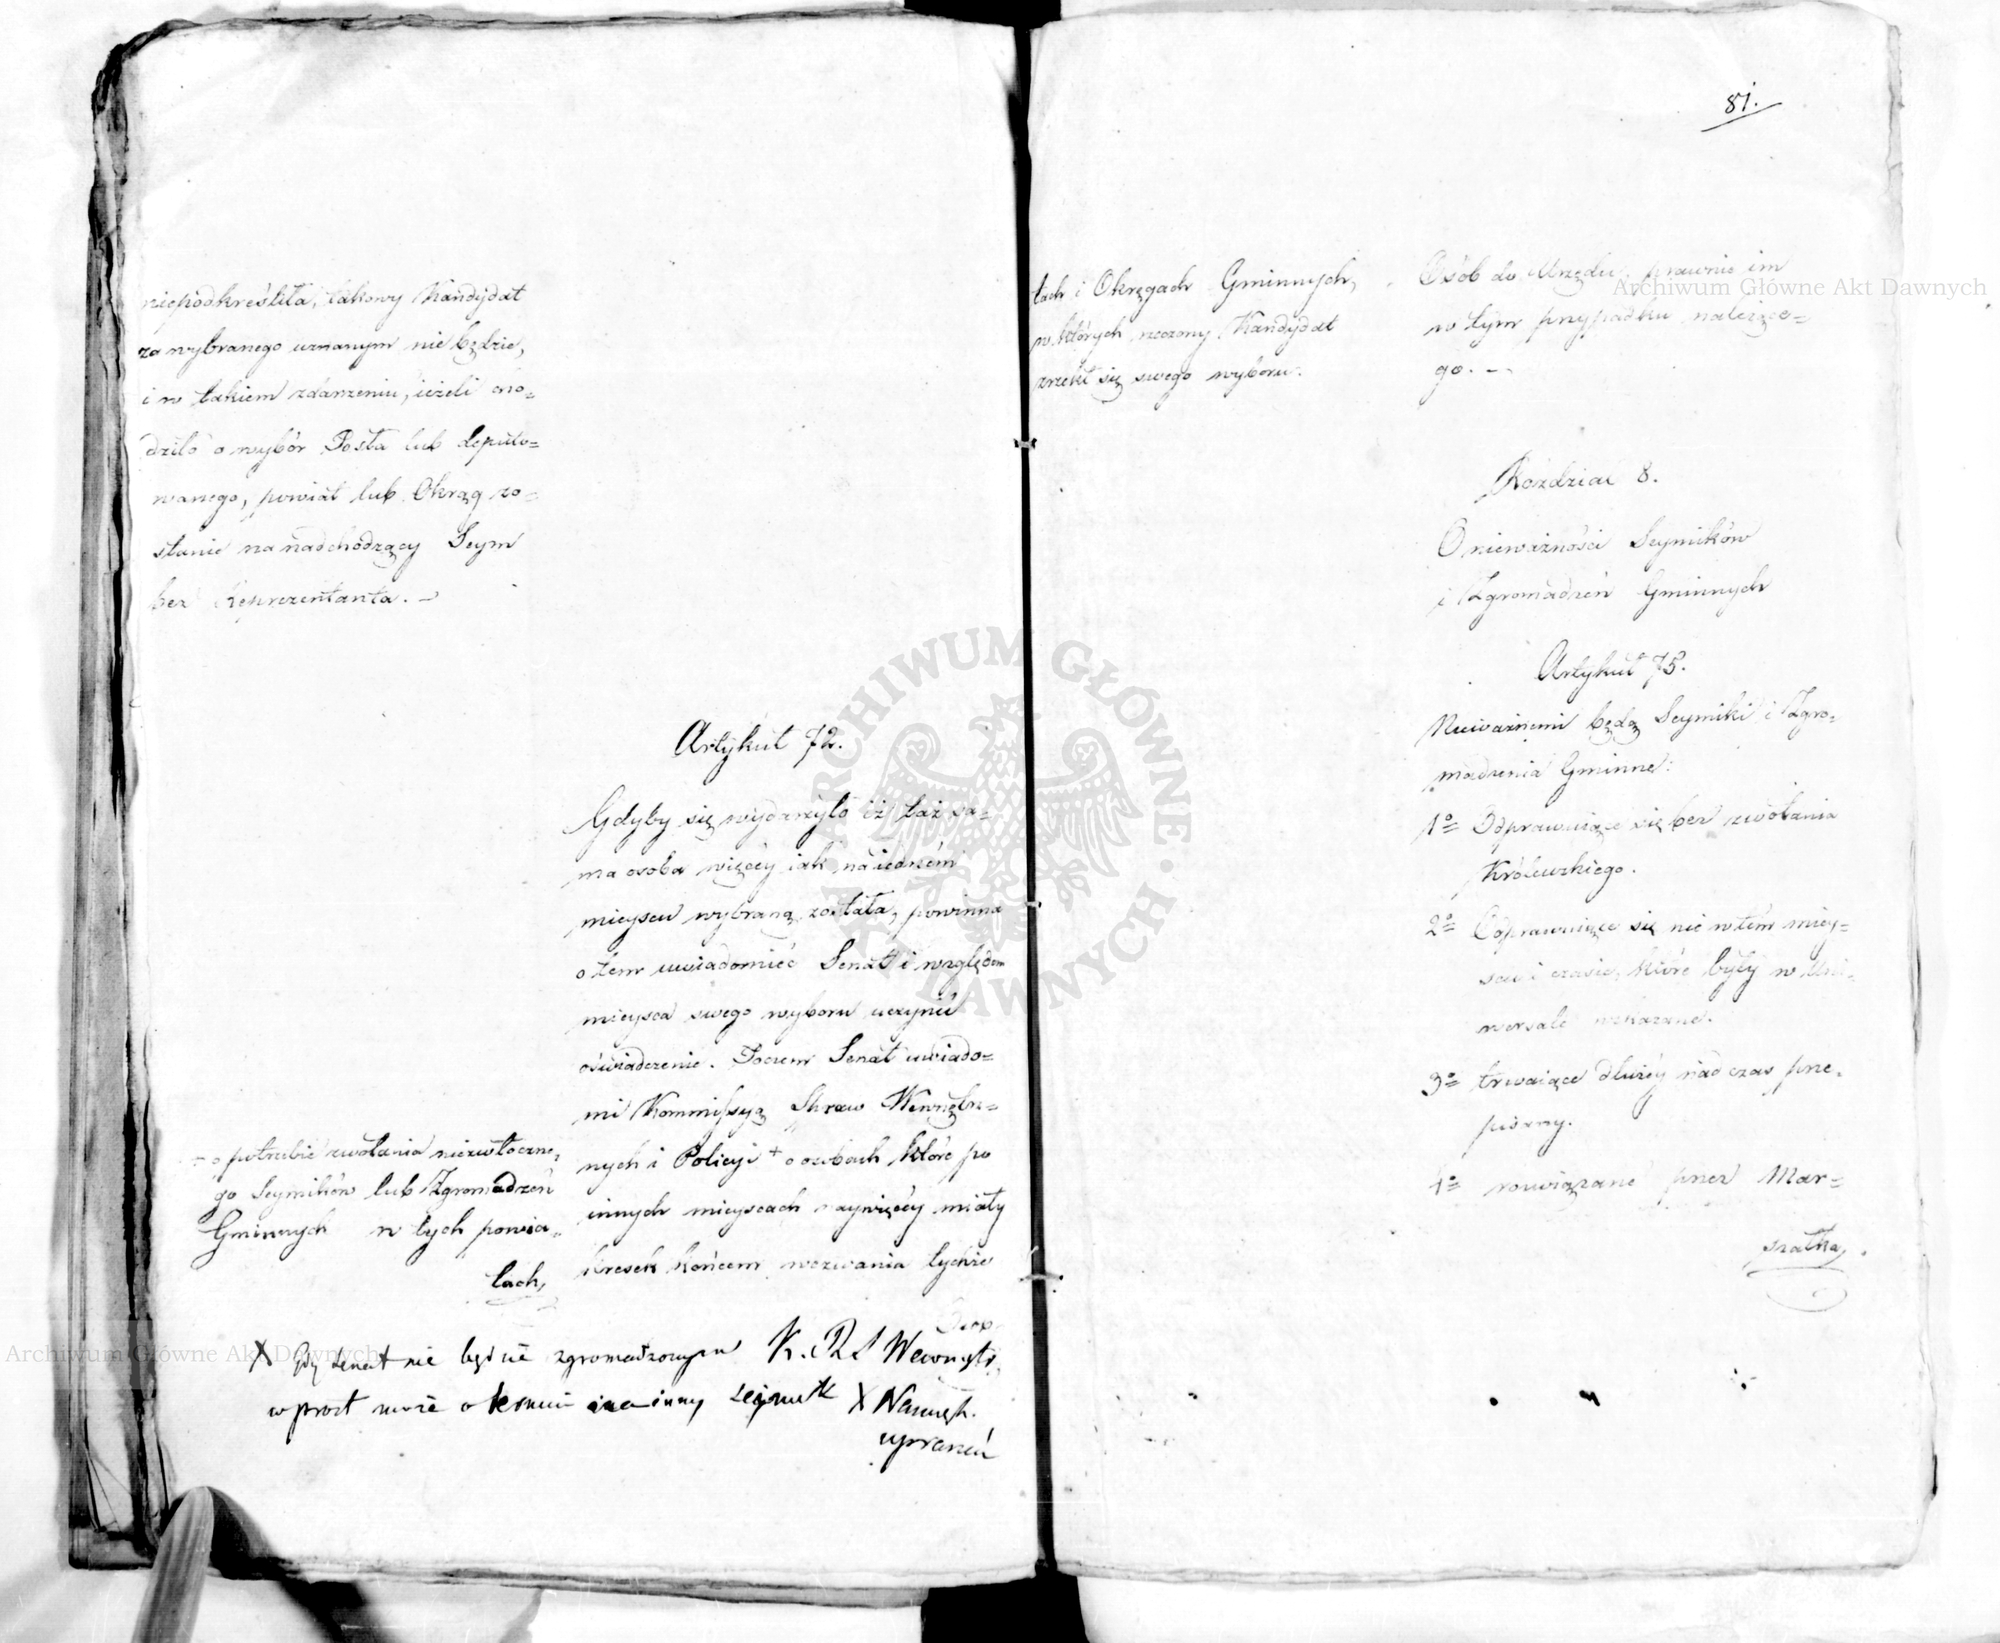 niepodkreśliła, takowy Kandydat
za wybranego uznanym nie będzie,
i w takiem zdarzeniu, ieżeli cho=
dziło o wybór Posła lub deputo=
wanego, powiat lub Okrąg zo=
stanie na nadchodzący Seym
bez Reprezentanta. –
Artykuł 72.
Gdyby się wydarzyło iż taż sa=
ma osoba więcéy iak na iedném
mieyscu wybraną została, powinna
o tem uwiadomić Senat i względem
mieysca swego wyboru uczynić
oświadczenie. Poczem Senat uwiado=
mi Kommissyą Spraw Wewnętrz=
nych i Policyi + o osobach które po
innych mieyscach naywięcéy miały
kresek końcem wezwania tychże
Osób
+ o potrzebie zwołania niezwłoczne=
go Seymików lub Zgromadzeń
Gminnych w tych powia=
tach,
X Gdy Senat nie będzie zgromadzonym K. R. S Wewnętr.
wprost może o termin na inny sejmik X Namiest.
uprasza
81.
tach i Okręgach Gminnych,
w których rzeczony Kandydat
zrzekł się swego wyboru.
Osób do Urzędu, prawnie im
w tym przypadku należące=
go. –
Rozdział 8.
O nieważności Seymików
i Zgromadzeń Gminnych
Artykuł 73.
Nieważnemi będą Seymiki i Zgro=
madzenia Gminne:
1º= Odprawuiące się bez zwołania
Królewskiego.
2º= Odprawuiące się nie w tém miey=
scu i czasie, które były w Uni=
wersale wskazane.
3º= trwaiące dłużéy nad czas prze=
pisany.
4º= rozwiązane przez Mar=
szałka,
Archiwum Główne Akt Dawnych
Archiwum Główne Akt Dawnych
ARCHIWUM GŁÓWNE · AKT DAWNYCH ·